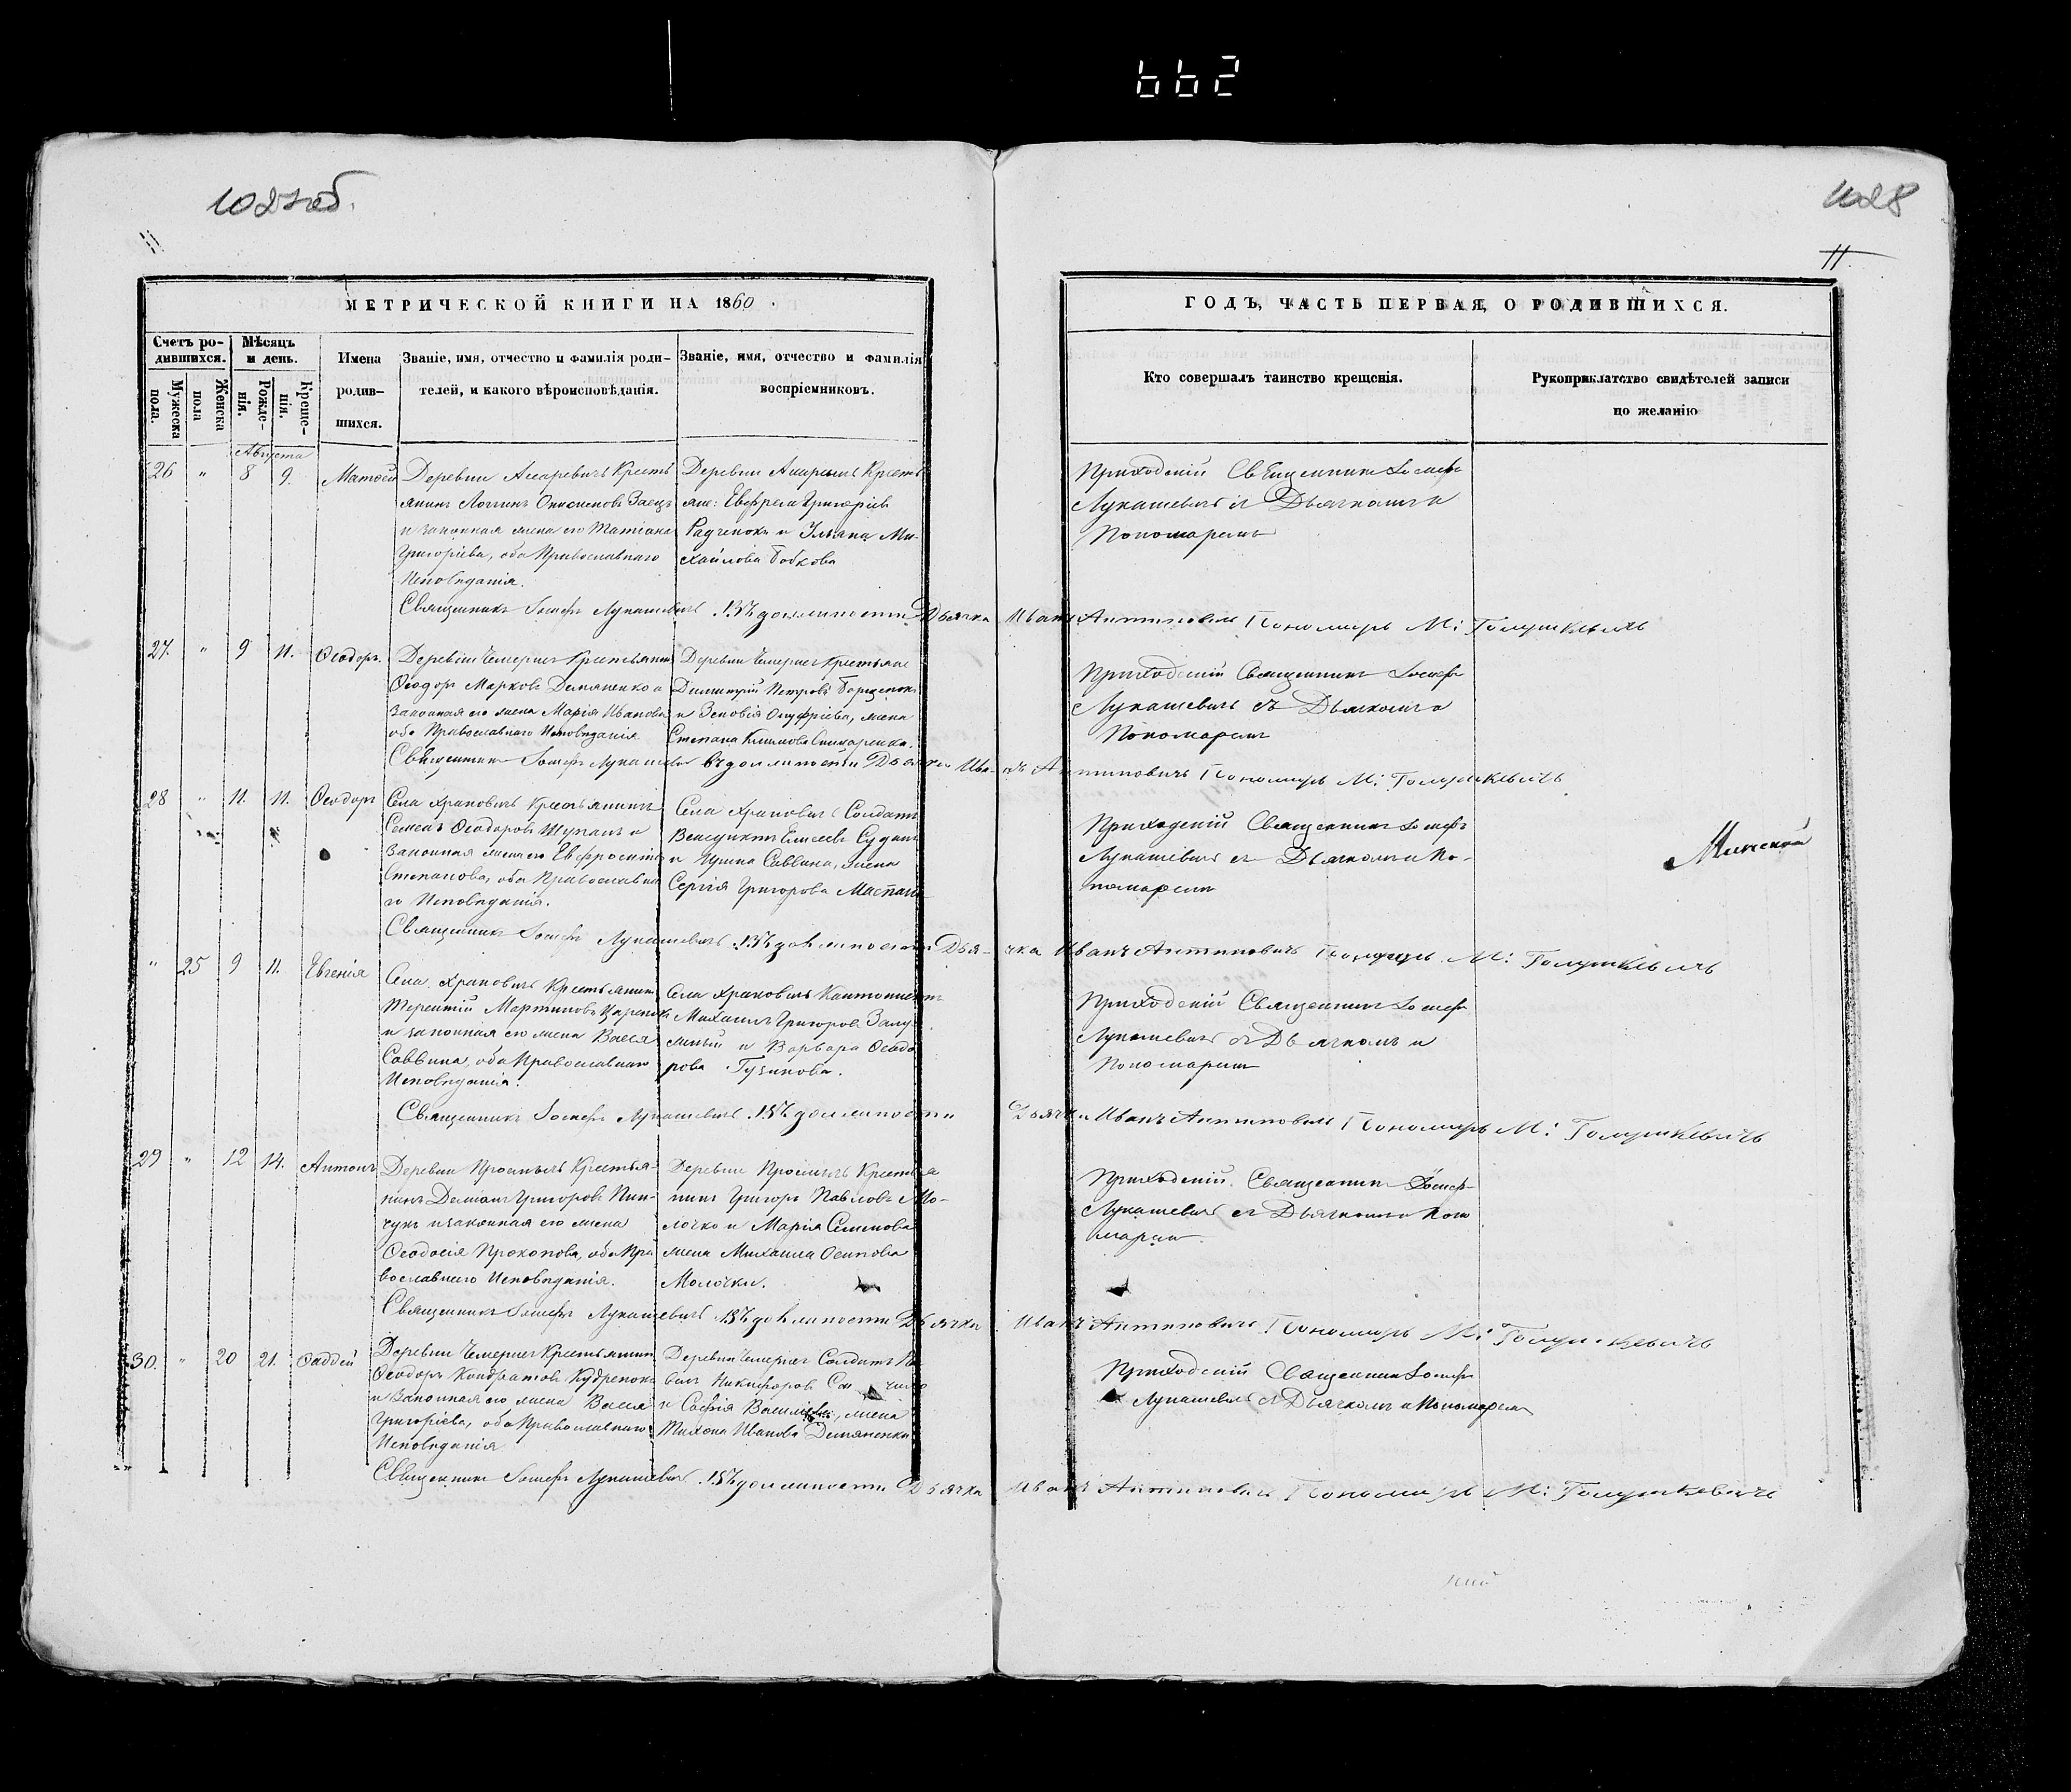 662
1027 об.
1028
11
11
МЕТРИЧЕСКОЙ КНИГИ НА 1860
ГОДЪ, ЧАСТЬ ПЕРВАЯ, О РОДИВШИХСЯ.
Счетъ ро-
дившихся.
Мѣсяцъ
и день.
Мужеска
пола.
Женска
пола
Рожде-
нія.
Креще-
нія.
Имена
родив-
шихся.
Званіе, имя, отчество и фамилія роди-
телей, и какого вѣроисповѣданія.
Званіе, имя, отчество и фамилія
воспріемниковъ.
Кто совершалъ таинство крещенія.
Рукоприклатство свидѣтелей записи
по желанію
Августа
26 " 8 9. Матѳей
Деревни Кресть
янинъ Логгинъ Заецъ
и законная жена его Татіана
Григоріева, оба Православнаго
Исповѣданія.
Деревни Кресть
яне: Ефремъ Григоріевъ
Радченокъ и Ульяна Ми-
хайлова Бобкова
Приходскій Священникъ Іосифъ
Лукашевичъ съ Дьячкомъ и
Пономаремъ
Священникъ Іосифъ Лукашевичъ. Въ должности Дьячка Иванъ Антиповичъ Пономарь М: Голушкевичъ
27. " 9 11. Ѳеодоръ.
Деревни Чемернъ Крестьянинъ
Ѳеодоръ Марковъ Демяненко и
Законная его жена Марія Иванова
оба Православнаго Исповѣданія
Деревни Чемернъ Крестьяне
Димитрій Петровъ Борщенокъ
и Зеновія Онуфріева, жена
Степана Климова
Приходскій Священникъ Іосифъ
Лукашевичъ съ Дьячкомъ и
Пономаремъ
Священникъ Іосифъ Лукашевичъ въ должности Дьячка Иванъ Антиповичъ Пономарь М: Голушкевичъ
28 " 11. 11. Ѳеодоръ
Села Храковичъ Крестьянинъ
Семенъ Ѳеодоровъ и
Законная жена его Евфросинія
Степанова, оба Православна
го Исповѣданія.
Села Храковичъ Солдатъ
Венедиктъ Елисеевъ
и Ирина Саввина, жена
Сергія Григорова
Приходскій Священникъ Іосифъ
Лукашевичъ съ Дьячкомъ и По-
номаремъ
Минской
Священникъ Іосифъ Лукашевичъ. Въ должности Дья- чка Иванъ Антиповичъ Пономарь М: Голушкевичъ
" 25 9 11. Евгенія
Села Храковичъ Крестьянинъ
Терентій Мартиновъ
и законная его жена Васса
Саввина, оба Православнаго
Исповѣданія.
Села Храковичъ Кантонистъ
Михаилъ Григоровъ
и Варвара Ѳеодо
рова Гузикова.
Приходскій Священникъ Іосифъ
Лукашевичъ съ Дьячкомъ и
Пономаремъ
Священникъ Іосифъ Лукашевичъ. Въ должности Дьячка Иванъ Антиповичъ Пономарь М: Голушкевичъ
29 " 12 14. Антонъ
Деревни Кресть-
нинъ Деміанъ Григоровъ Пин-
чукъ и законная его жена
Ѳеодосія Прокопова, оба Пра
вославнаго Исповѣданія.
Деревни Крестья
нинъ Григоръ Павловъ Мо-
лочко и Марія Семенова
жена Михаила Осипова
Молочки.
Приходскій Священникъ Іосифъ
Лукашевичъ съ Дьячкомъ и Поно
маремъ
Священникъ Іосифъ Лукашевичъ. Въ должности Дьячка Иванъ Антиповичъ Пономарь М: Голушкевичъ
30. " 20 21. Ѳаддей
Деревни Чемернъ Крестьянинъ
Ѳеодоръ Кондратовъ Кудренокъ
и Законная его жена Васса
Григоріева, оба Православнаго
Исповѣданія
Деревни Чемернъ Солдатъ
Никифоровъ
и Софія Василіева, жена
Тихона Иванова Демяненки
Приходскій Священникъ Іосифъ
Лукашевичъ съ Дьячкомъ и Пономаремъ
Священникъ Іосифъ Лукашевичъ. Въ должности Дьячка Иванъ Антиповичъ Пономарь М: Голушкевичъ